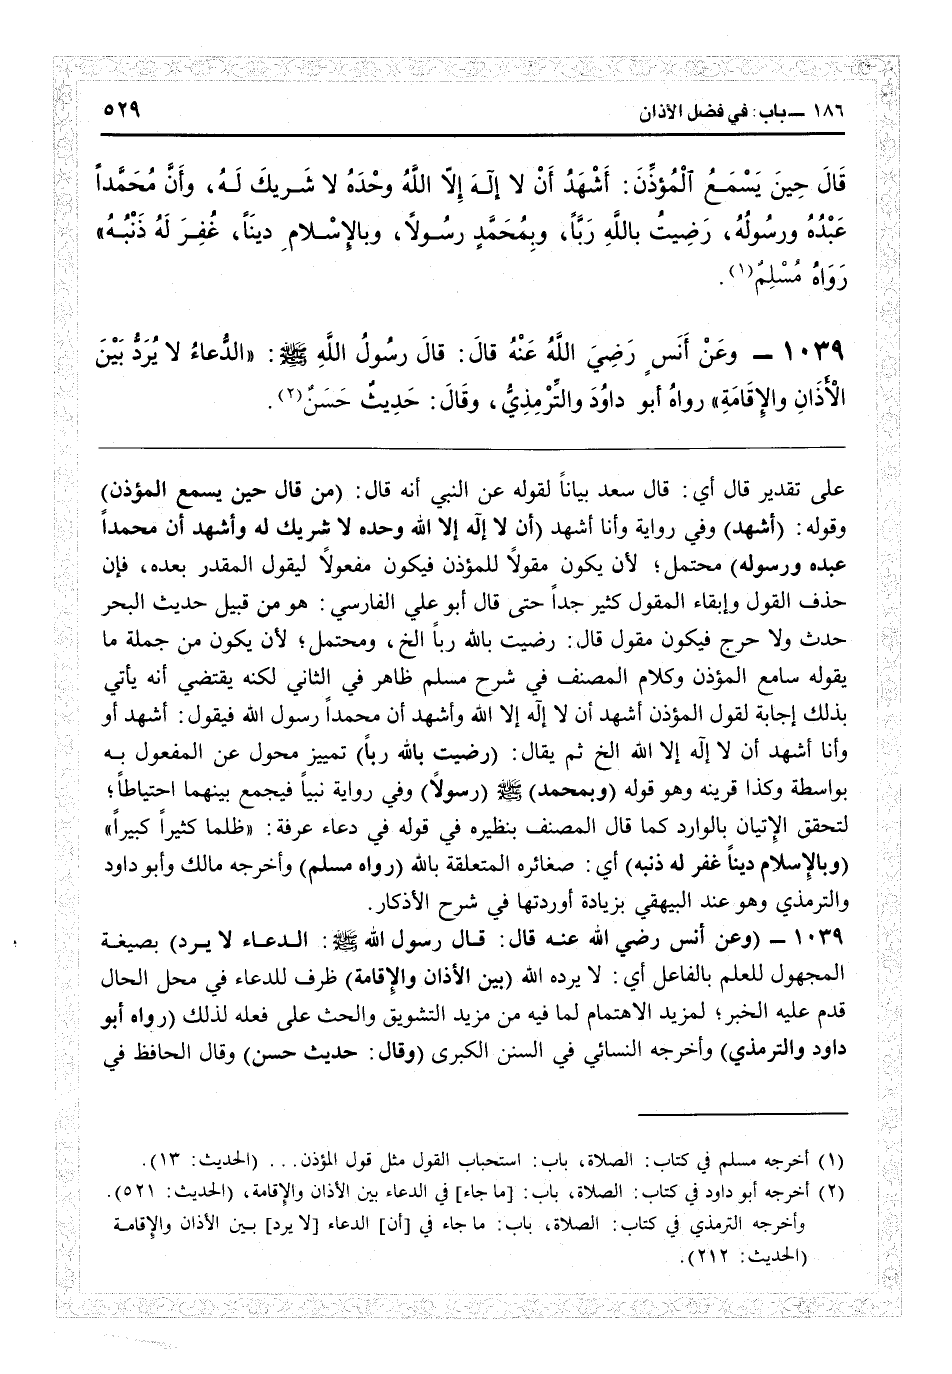 ١٨٦ ــ باب: في فضل الأذان ٥٢٩
قَالَ حِينَ يَسْمَعُ ٱلْمُؤذِّنَ: أَشْهَدُ أَنْ لا إلٰهَ إِلّا اللَّهُ وحْدَهُ لا شَرِيكَ لَهُ، وأَنَّ مُحَمَّداً
عَبْدُهُ ورسُولُهُ، رَضِيتُ باللَّهِ رَبَّاً، وبِمُحَمَّدٍ رسُولاً، وبالإِسْلامِ دينَاً، غُفِرَ لَهُ ذَنْبُهُ»
رَوَاهُ مُسْلِمٌ(١).
١٠٣٩ ــ وعَنْ أَنَسٍ رَضِيَ اللَّهُ عَنْهُ قالَ: قالَ رسُولُ اللَّهِ ﷺ: «الدُّعاءُ لا يُرَدُّ بَيْنَ
الْأَذَانِ والإِقَامَةِ» رواهُ أبو داوُدَ والتِّرْمِذِيُّ، وقَالَ: حَدِيثٌ حَسَنٌ(٢).
على تقدير قال أي: قال سعد بياناً لقوله عن النبي أنه قال: (من قال حين يسمع المؤذن)
وقوله: (أشهد) وفي رواية وأنا أشهد (أن لا إلٰه إلا الله وحده لا شريك له وأشهد أن محمداً
عبده ورسوله) محتمل؛ لأن يكون مقولاً للمؤذن فيكون مفعولاً ليقول المقدر بعده، فإن
حذف القول وإبقاء المقول كثير جداً حتى قال أبو علي الفارسي: هو من قبيل حديث البحر
حدث ولا حرج فيكون مقول قال: رضيت بالله رباً الخ، ومحتمل؛ لأن يكون من جملة ما
يقوله سامع المؤذن وكلام المصنف في شرح مسلم ظاهر في الثاني لكنه يقتضي أنه يأتي
بذلك إجابة لقول المؤذن أشهد أن لا إلٰه إلا الله وأشهد أن محمداً رسول الله فيقول: أشهد أو
وأنا أشهد أن لا إلٰه إلا الله الخ ثم يقال: (رضيت بالله رباً) تمييز محول عن المفعول به
بواسطة وكذا قرينه وهو قوله (وبمحمد) ﷺ (رسولاً) وفي رواية نبياً فيجمع بينهما احتياطاً؛
لتحقق الإِتيان بالوارد كما قال المصنف بنظيره في قوله في دعاء عرفة: «ظلما كثيراً كبيراً»
(وبالإِسلام ديناً غفر له ذنبه) أي: صغائره المتعلقة بالله (رواه مسلم) وأخرجه مالك وأبو داود
والترمذي وهو عند البيهقي بزيادة أوردتها في شرح الأذكار.
١٠٣٩ ــ (وعن أنس رضي الله عنه قال: قال رسول الله ﷺ: الدعاء لا يرد) بصيغة
المجهول للعلم بالفاعل أي: لا يرده الله (بين الأذان والإِقامة) ظرف للدعاء في محل الحال
قدم عليه الخبر؛ لمزيد الاهتمام لما فيه من مزيد التشويق والحث على فعله لذلك (رواه أبو
داود والترمذي) وأخرجه النسائي في السنن الكبرى (وقال: حديث حسن) وقال الحافظ في
(١) أخرجه مسلم في كتاب: الصلاة، باب: استحباب القول مثل قول المؤذن... (الحديث: ١٣).
(٢) أخرجه أبو داود في كتاب: الصلاة، باب: [ما جاء] في الدعاء بين الأذان والإِقامة، (الحديث: ٥٢١).
وأخرجه الترمذي في كتاب: الصلاة، باب: ما جاء في [أن] الدعاء [لا يرد] بين الأذان والإِقامة
(الحديث: ٢١٢).